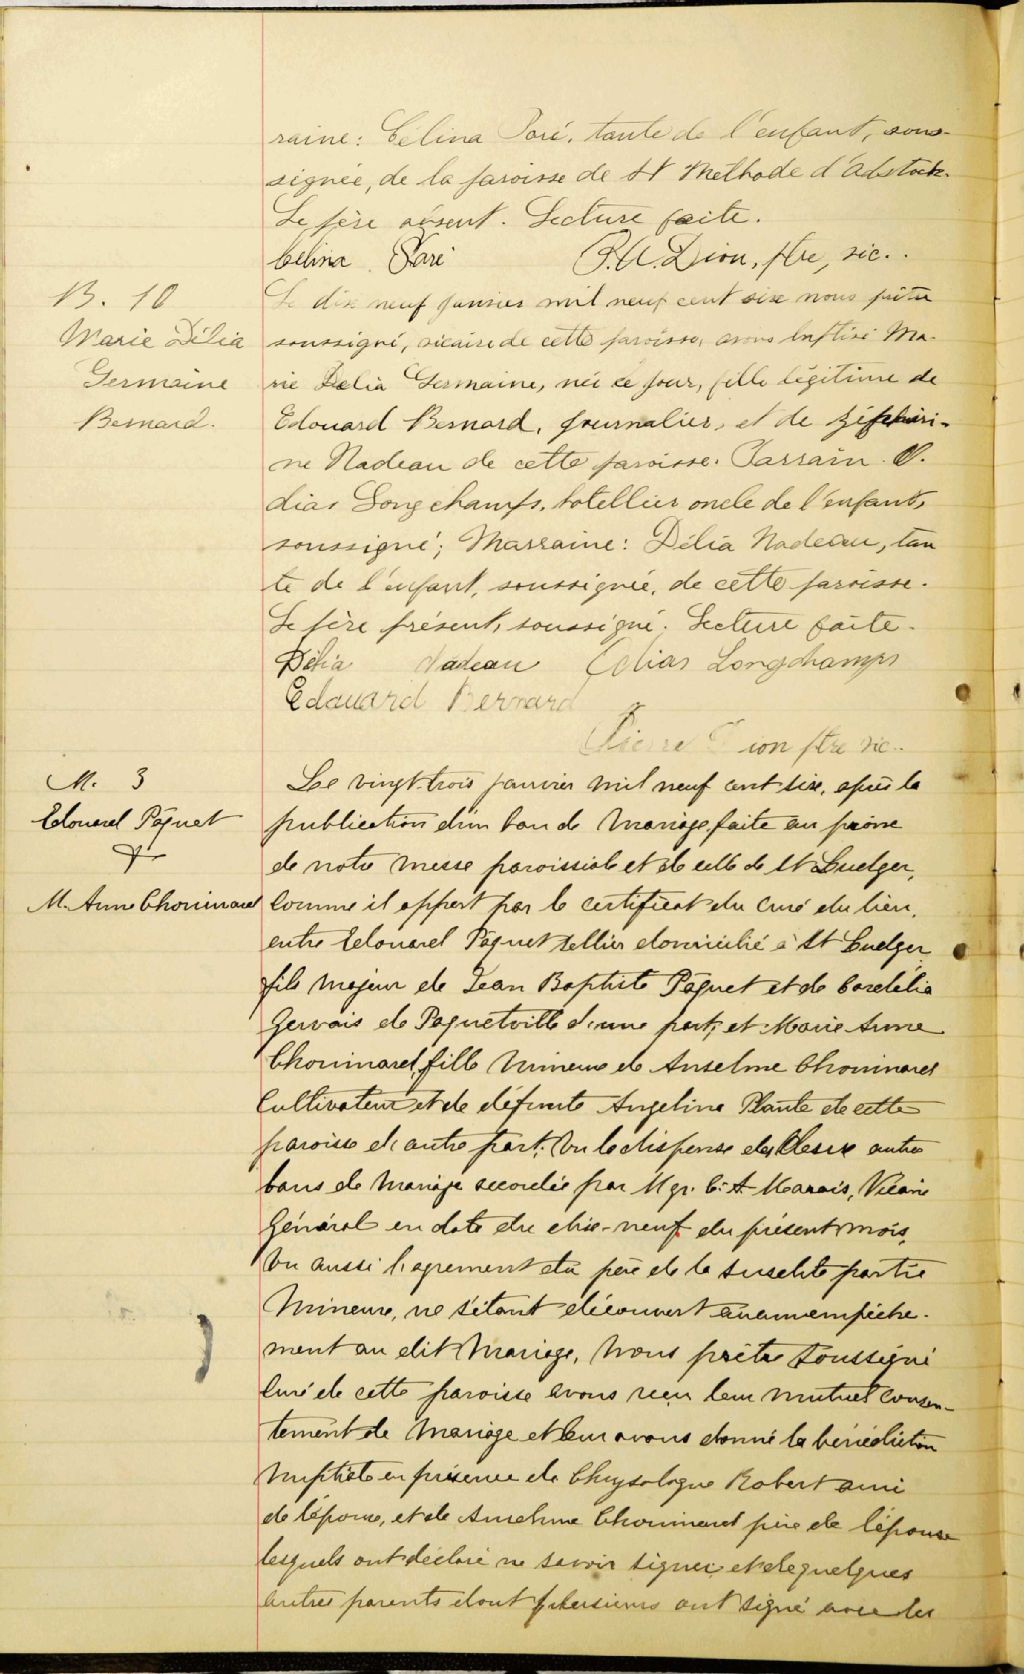 raine: Célina Paré, tante de l'enfant, sous-
signée, de la paroisse de St Methode d'Adstock.
Le père absent. Lecture faite.
Célina Paré P.A. Dion, ptre, vic.
B. 10
Marie Délia
Germaine
Bernard.
Le dix neuf janvier mil neuf cent six nous prêtre
soussigné, vicaire de cette paroisse, avons baptisé Ma-
rie Délia Germaine, née ce jour, fille légitime de
Edouard Bernard, journalier, et de Zéphiri-
ne Nadeau de cette paroisse. Parrain: O-
dias Longchamps, hotellier oncle de l'enfant,
soussigné; Marraine: Délia Nadeau, tan
te de l'enfant, soussignée, de cette paroisse.
Le père présent, soussigné. Lecture faite.
Délia Nadeau Odias Longchamps
Edouard Bernard
Pierre Dion ptre vic.
M. 3
Edouard Pâquet
&
M. Anne Chouinard
Le vingt-trois janvier mil neuf cent six, après la
publication d'un ban de mariage faite au prône
de notre messe paroissiale et de celle de St Ludger,
comme il appert par le certificat du curé du lieu,
entre Edouard Pâquet sellier domicilié à St Ludger
fils majeur de Jean Baptiste Pâquet et de Cordélia
Gervais de Paquetville d'une part, et Marie Anne
Chouinard, fille mineure de Anselme Chouinard
Cultivateur et de défunte Angelina Plante de cette
paroisse d'autre part; Vu la dispense des deux autres
bans de mariage accordée par Mgr. C. A. Marois, Vicaire
Général en date du dix-neuf du présent mois,
Vu aussi l'agrement du père de la susdite partie
mineure, ne s'étant découvert aucun empêche-
ment au dit mariage, Nous prêtre soussigné
Curé de cette paroisse avons reçu leur mutuel consen-
tement de mariage et leur avons donné la bénédiction
nuptiale en présence de Chrysologue Robert ami
de l'époux, et de Anselme Chouinard père de l'épouse
lesquels ont déclaré ne savoir signer, et de quelques
autres parents dont plusieurs ont signé avec les